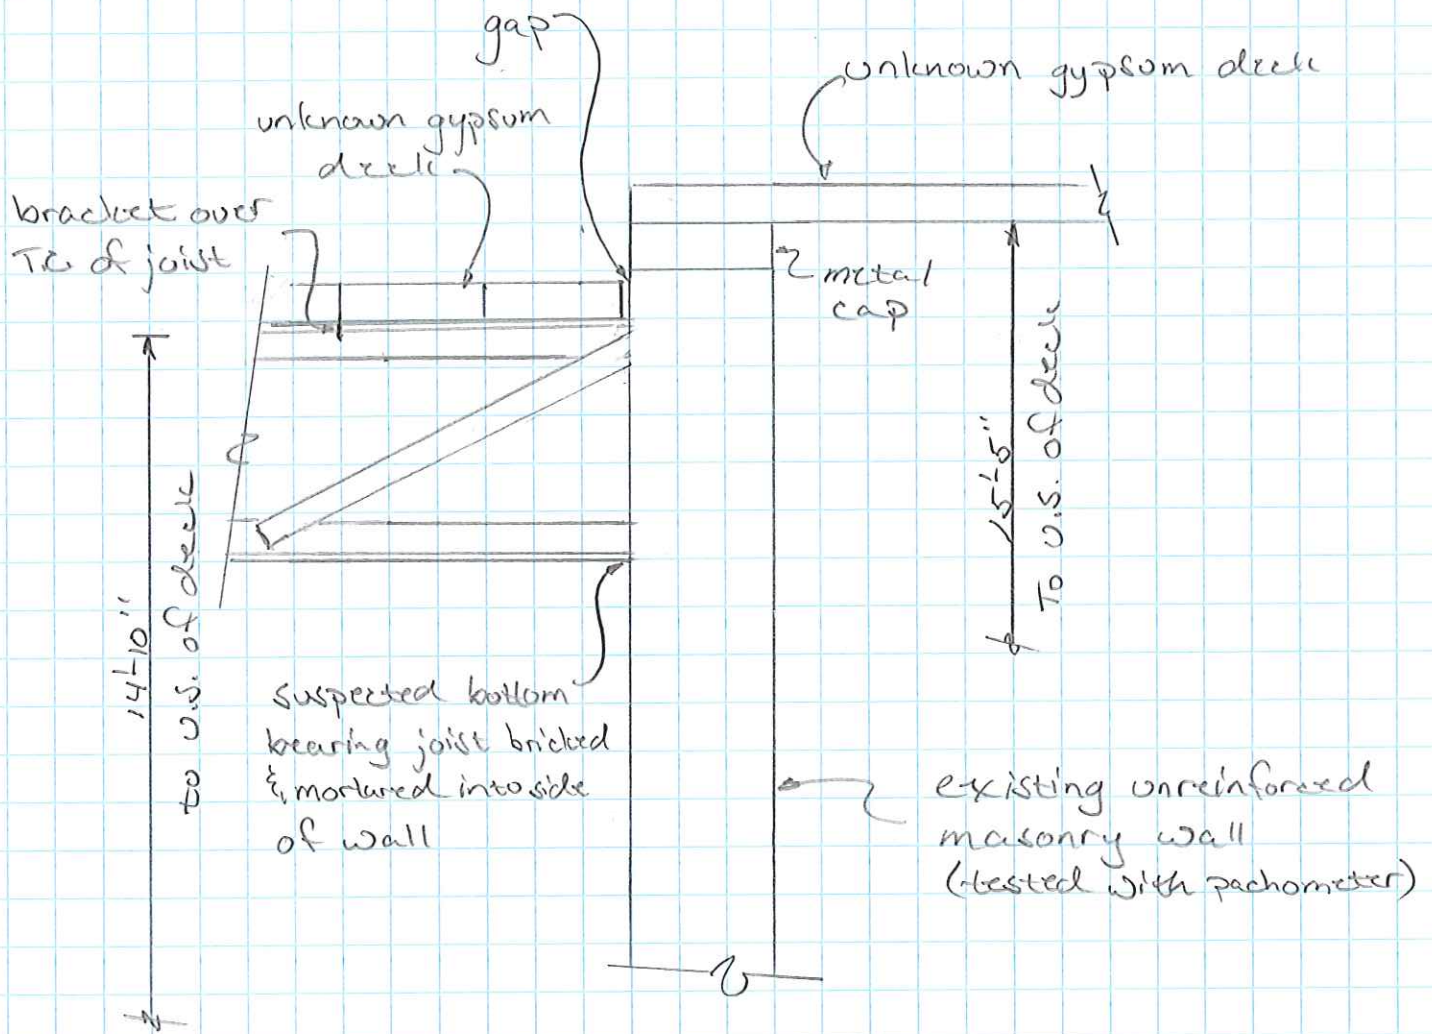 gap
unknown gypsum deck
unknown gypsum
deck
bracket over
T.C. of joist
metal
cap
15'-5"
To U.S. of deck
14'-10"
to U.S. of deck
suspected bottom
bearing joist bricked
& mortared into side
of wall
existing unreinforced
masonry wall
(tested with pachometer)